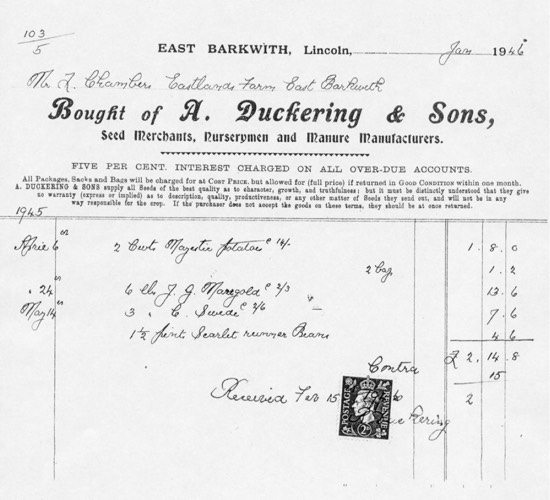 103/5
EAST BARKWITH, Lincoln, Jan 1946
Mr Chambers Eastlands Farm East Barkwith
Bought of A. Duckering & Sons,
Seed Merchants, Nurserymen and Manure Manufacturers.
FIVE PER CENT. INTEREST CHARGED ON ALL OVER-DUE ACCOUNTS.
All Packages, Sacks and Bags will be charged for at COST PRICE, but allowed for (full price) if returned in GOOD CONDITION within one month.
A. DUCKERING & SONS supply all Seeds of the best quality as to character, growth, and truthfulness; but it must be distinctly understood that they give
no warranty (express or implied) as to description, quality, productiveness, or any other matter of Seeds they send out, and will not be in any
way responsible for the crop. If the purchaser does not accept the goods on these terms, they should be at once returned.
1945
April 6 2 Cwts Majestic Potatoes @ 14/- 1. 8. 0
2 Bags 1. 2
" 24 6 lbs Y. G. Mangold @ 2/3 13. 6
May 14 3 " Swede @ 2/6 7. 6
1½ pint Scarlet runner Beans 4 6
£ 2. 14. 8
Contra 15
Received Feb 15 6 2
POSTAGE REVENUE
kering